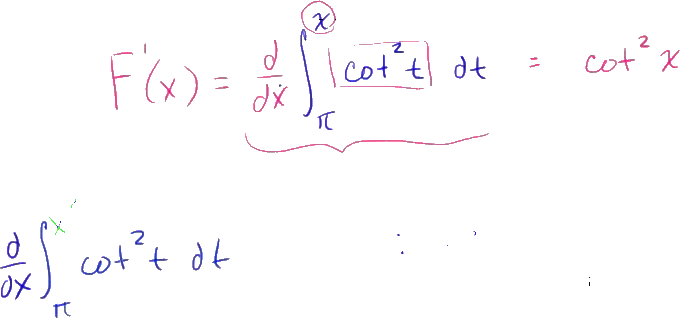 F'(x) = d/dx ∫_π^x cot²t dt = cot² x
d/dx ∫_π^x cot²t dt